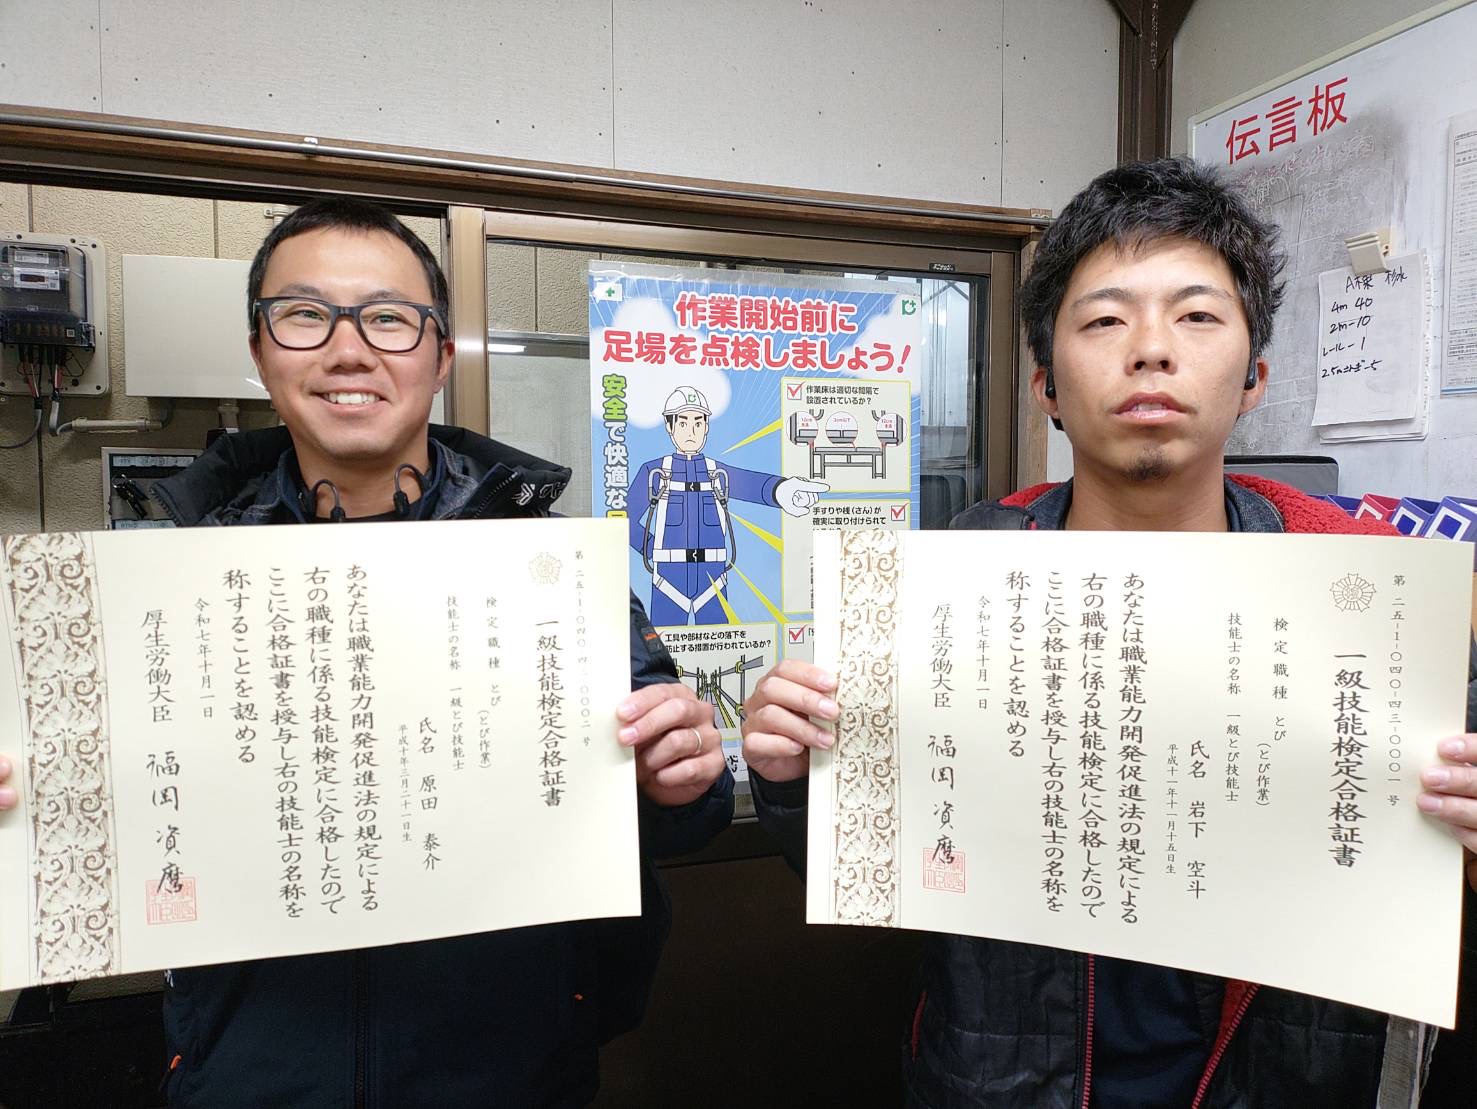 伝言板
A様 杉水
4m 40
2m-10
レール-1
作業開始前に
足場を点検しましょう!
安全で快適な
作業床は適切な間隔で
設置されているか?
手すりや桟(さん)が
確実に取り付けられて
工具や部材などの落下を
防止する措置が行われているか?
第二五-一-〇四〇-四三-〇〇〇一号
一級技能検定合格証書
検定職種 とび
(とび作業)
技能士の名称 一級とび技能士
氏名 岩下 空斗
平成十一年十一月十五日生
あなたは職業能力開発促進法の規定による
右の職種に係る技能検定に合格したので
ここに合格証書を授与し右の技能士の名称を
称することを認める
令和七年十月一日
厚生労働大臣 福岡 資麿
第二五-一-〇四〇-四
〇〇〇二号
一級技能検定合格証書
検定職種 とび
(とび作業)
技能士の名称 一級とび技能士
氏名 原田 泰介
平成十年三月二十一日生
あなたは職業能力開発促進法の規定による
右の職種に係る技能検定に合格したので
ここに合格証書を授与し右の技能士の名称を
称することを認める
令和七年十月一日
厚生労働大臣 福岡 資麿